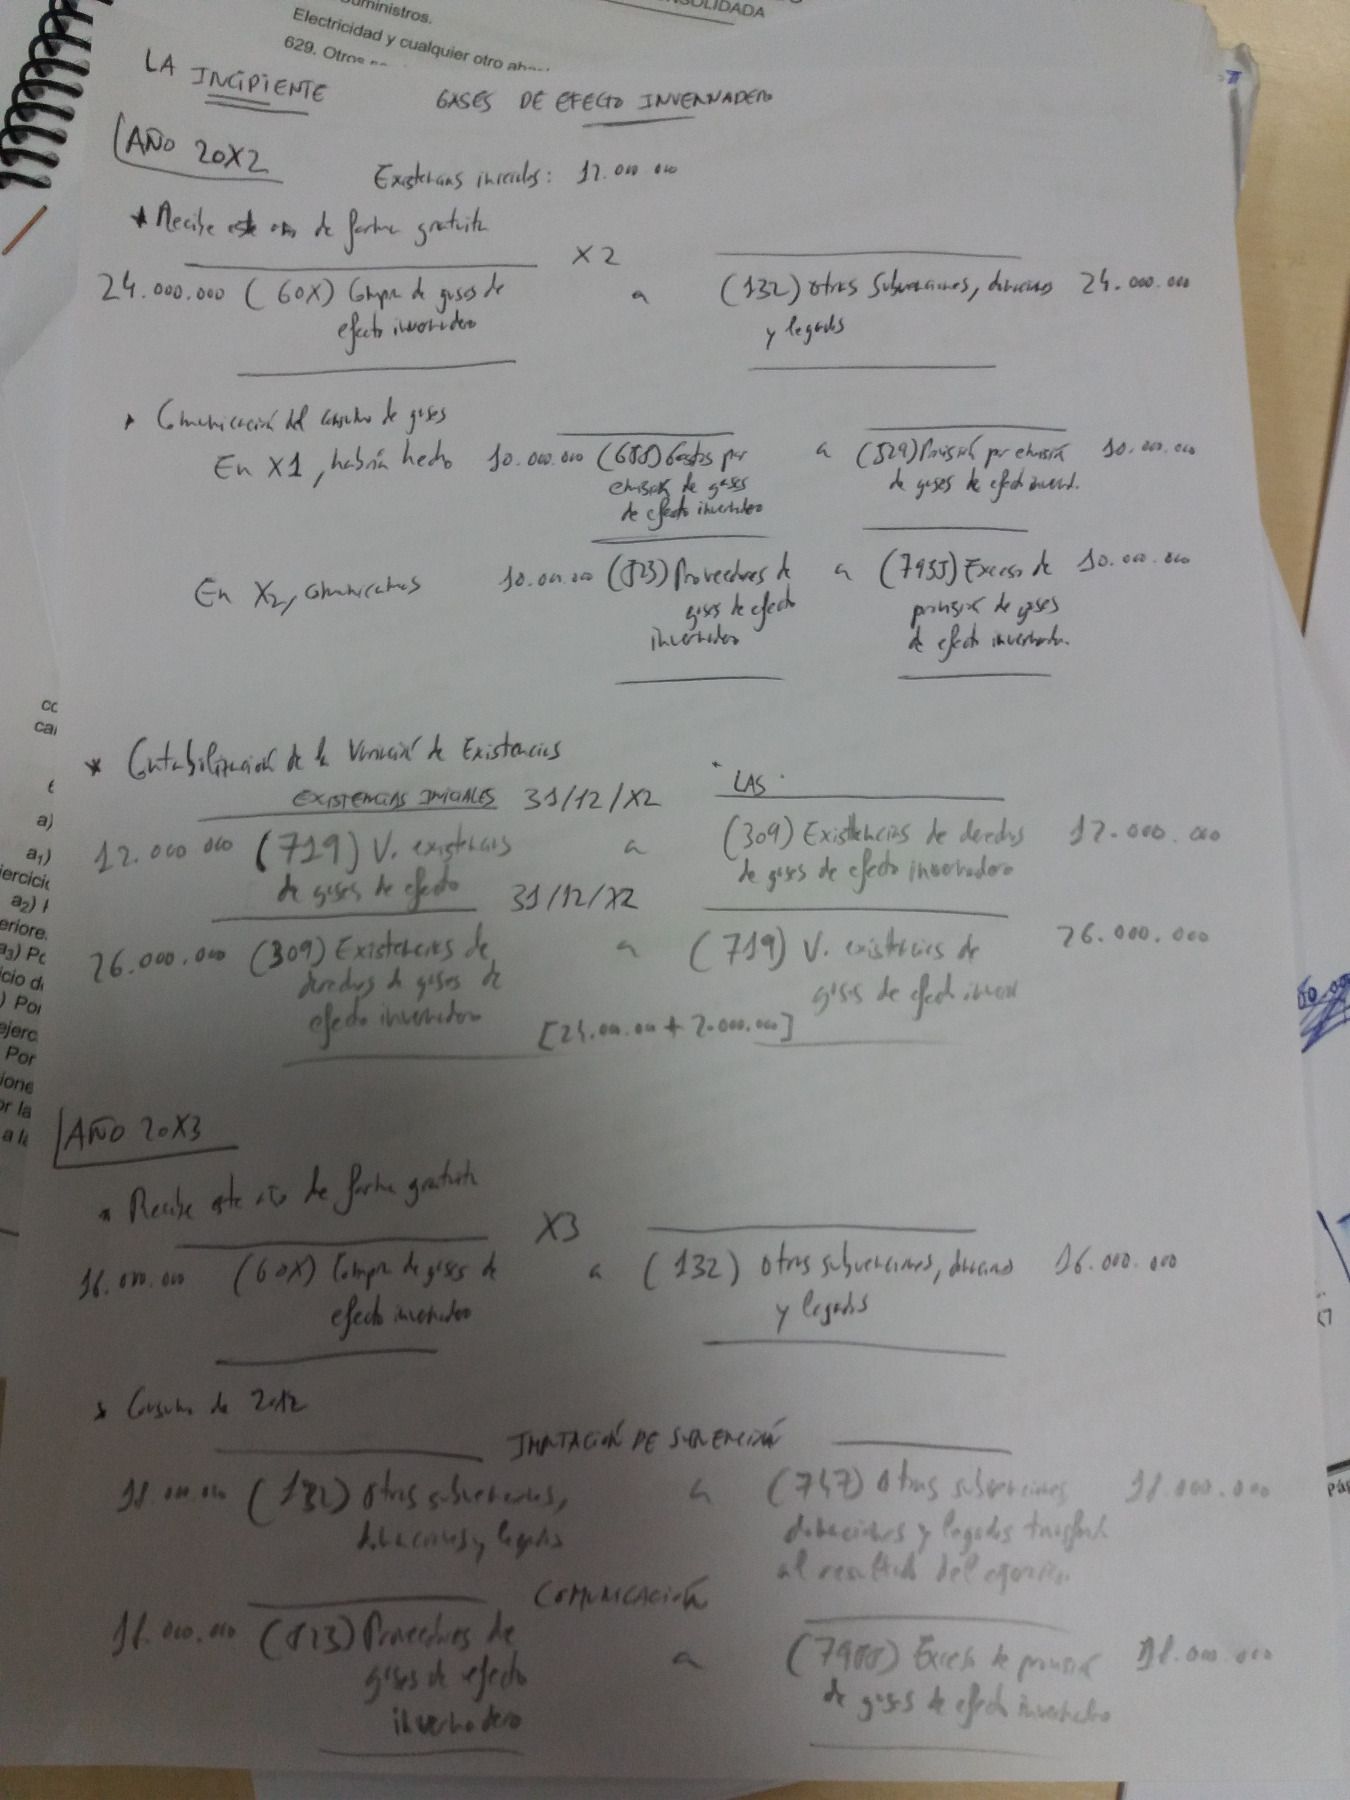 uministros.
NSOLIDADA
Electricidad y cualquier otro
629. Otros
LA INCIPIENTE GASES DE EFECTO INVERNADERO
AÑO 20X2
Existencias iniciales: 12.000.000
* Recibe este año de forma gratuita
X2
24.000.000 (60X) Compra de gases de a (132) Otras Subvenciones, donaciones 24.000.000
efecto invernadero y legados
* Comunicación del consumo de gases
En X1, habría hecho 10.000.000 (688) Gastos por a (529) Provisión por emisión 10.000.000
emisión de gases de gases de efecto invernad.
de efecto invernadero
En X2, comunicamos 10.000.000 (523) Proveedores de a (7955) Exceso de 10.000.000
gases de efecto provisión de gases
invernadero de efecto invernad.
* Contabilización de la Variación de Existencias
EXISTENCIAS INICIALES 31/12/X2 LAS
12.000.000 (719) V. existencias a (309) Existencias de derechos 12.000.000
de gases de efecto de gases de efecto invernadero
31/12/X2
26.000.000 (309) Existencias de a (719) V. existencias de 26.000.000
derechos de gases de gases de efecto invern
efecto invernadero [24.000.000 + 2.000.000]
AÑO 20X3
* Recibe este año de forma gratuita
X3
16.000.000 (60X) Compra de gases de a (132) Otras subvenciones, donaciones 16.000.000
efecto invernadero y legados
* Consumo de 20X2
IMPUTACIÓN DE SUBVENCIÓN
18.000.000 (132) Otras subvenciones, a (747) Otras subvenciones 18.000.000
donaciones y legados donaciones y legados transferid
al resultado del ejercicio
COMUNICACIÓN
18.000.000 (523) Proveedores de a (7955) Exceso de provisión 18.000.000
gases de efecto de gases de efecto invernadero
invernadero